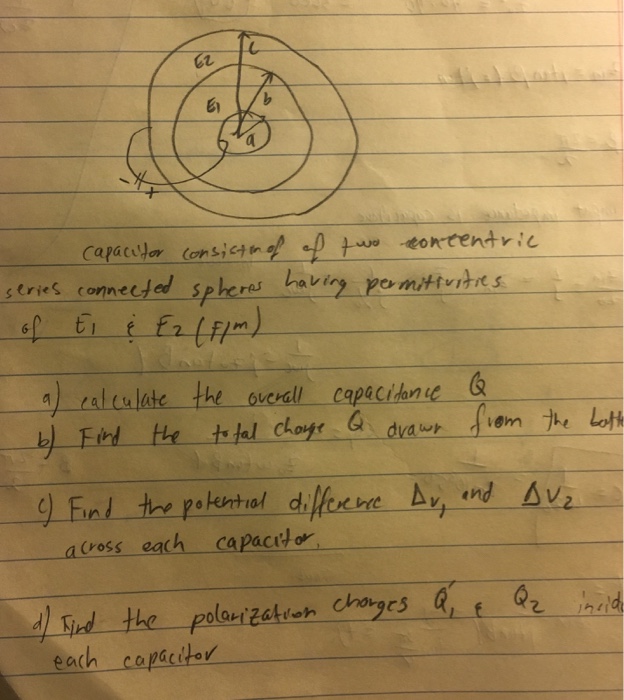 E2
c
E1
b
a
- +
capacitor consisting of two concentric
series connected spheres having permitivities
of E1 & E2 (F/m)
a) calculate the overall capacitance Q
b) Find the total charge Q drawn from the batte
c) Find the potential difference Δv1 and ΔV2
across each capacitor.
d) Find the polarization charges Q1' & Q2 insid
each capacitor